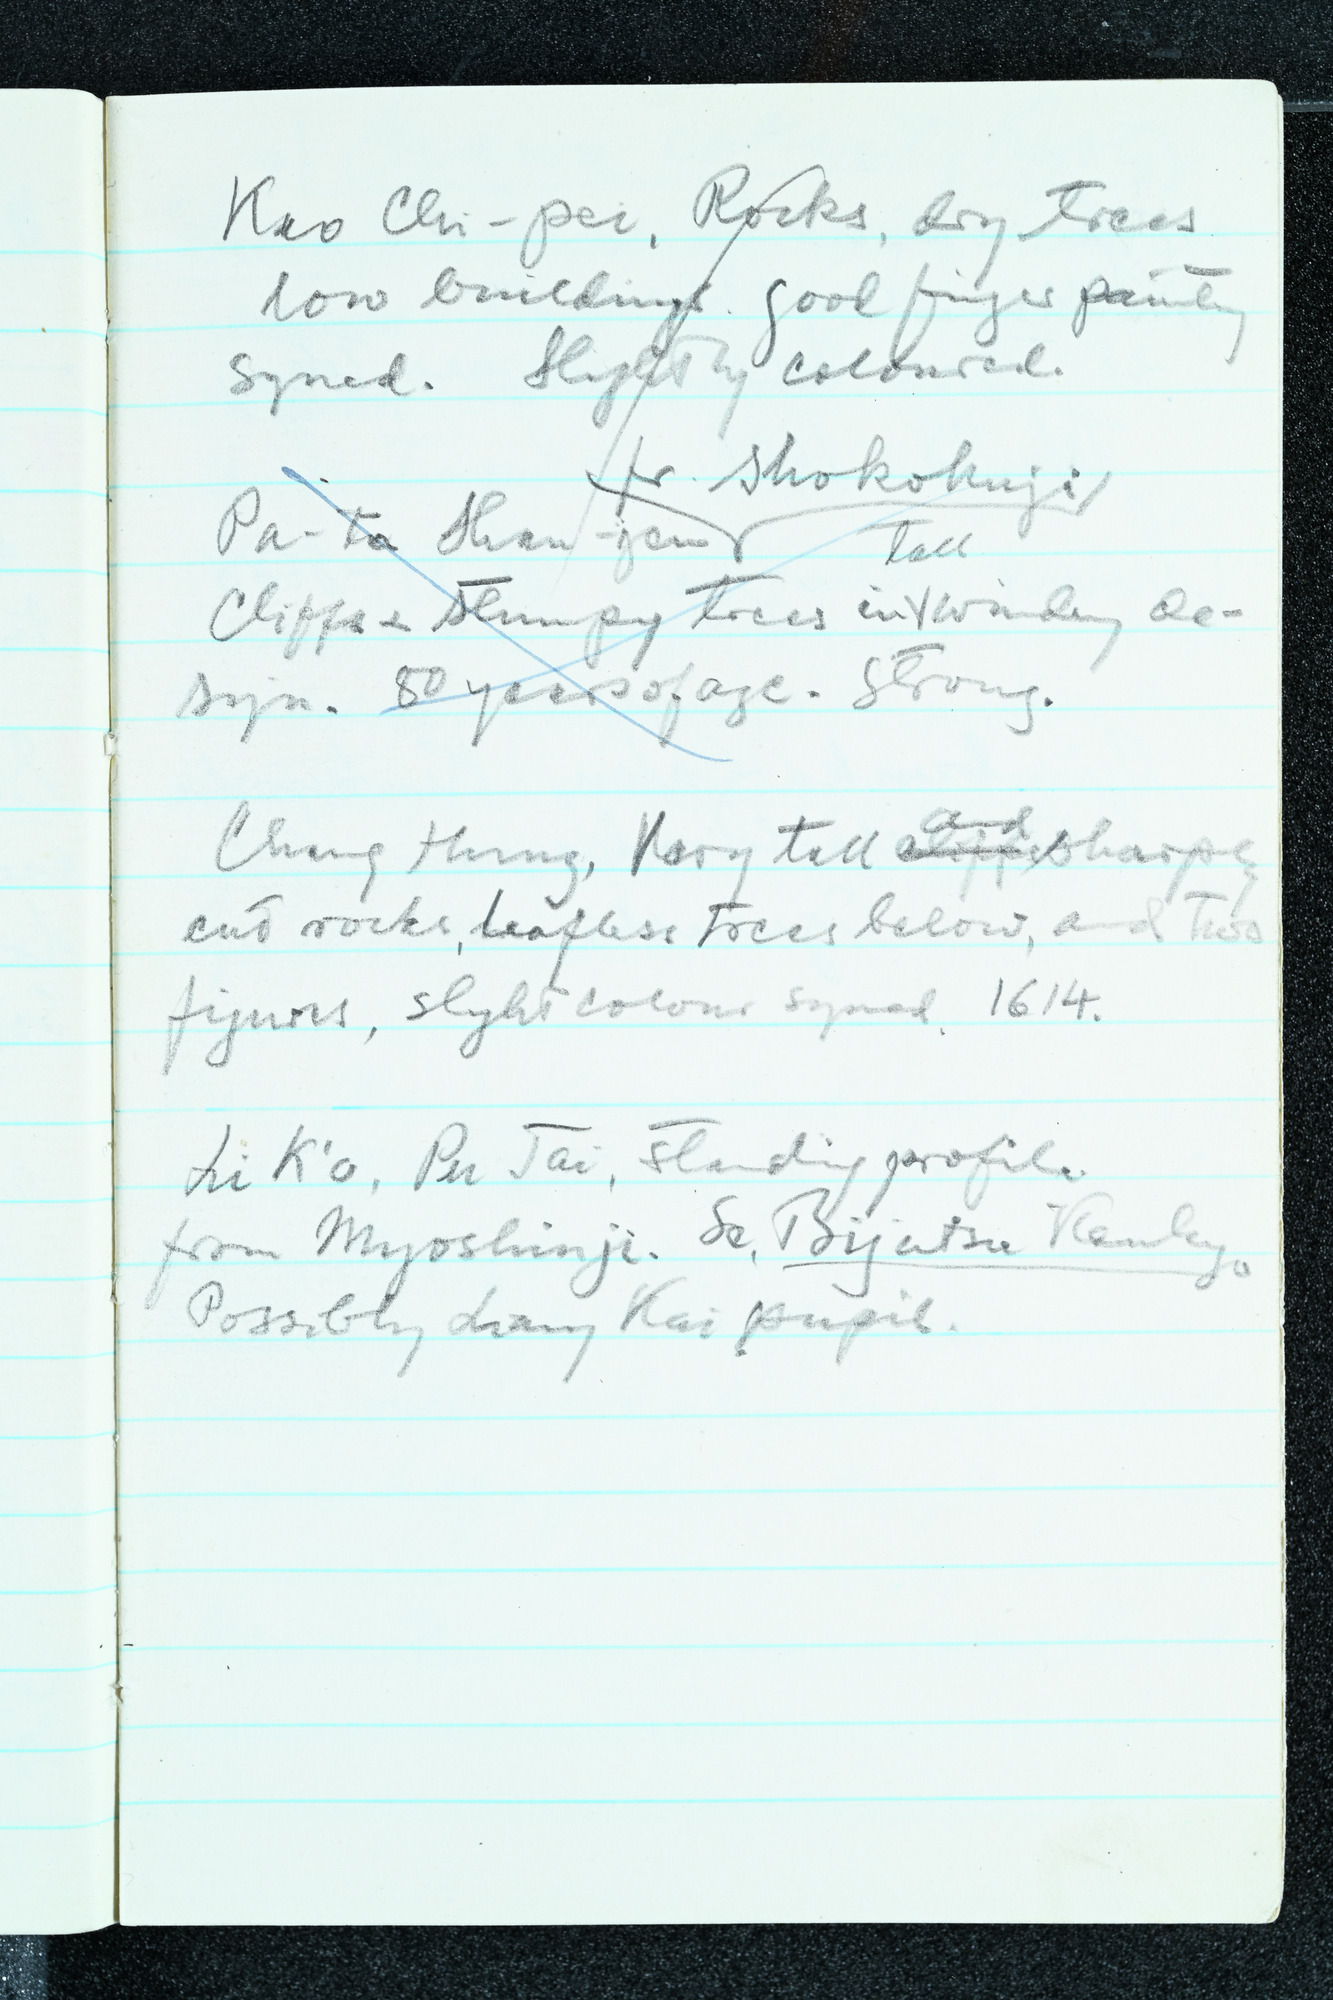 Kao Chi-pei, Rocks, dry trees
low buildings. good finger painting
signed. Slightly coloured.
fr. Shokokuji
Pa-ta Shan-jen
tall
Cliffs & stumpy trees in winding de-
sign. 80 years of age. Strong.
Chang Hung, Very tall cliffs and sharply
cut rocks, leafless trees below, and two
figures, slight colour signed. 1614.
Li K'o, Pu Tai, standing profile
from Myoshinji. Se. Bijutsu
Possibly Liang Kai pupil.